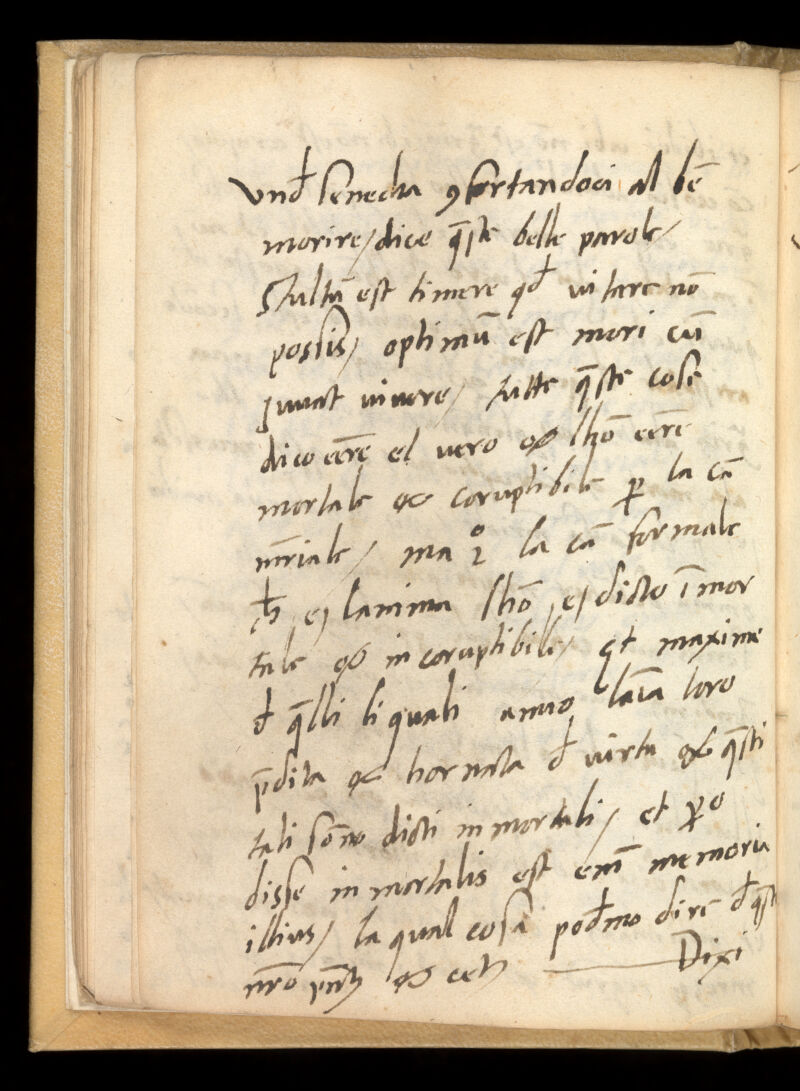 Vnđ senecha ꝯfortandoci al bẽ
morire / dice q̃ste belle parole /
Stultũ est timere qđ uitare nõ
possis / optimũ est mori cũ
iuuat uiuere / tutte q̃ste cose
dico eẽre el uero & lhõ eẽre
mortale & coruptibile ꝑ la cã
mr̃iale / ma la cã formale
lanima lhõ e dicto ĩmor
tale & in coruptibile / et maxime
đ q̃lli li quali anno laĩa loro
p̃dita & hornata đ uirtu & q̃sti
tali sõno dicti in mortali / et ꝑo
disse in mortalis est enĩ memoria
illius / la qual cosa pođmo dire đ q̃st
nr̃o & cetꝫ Dixi